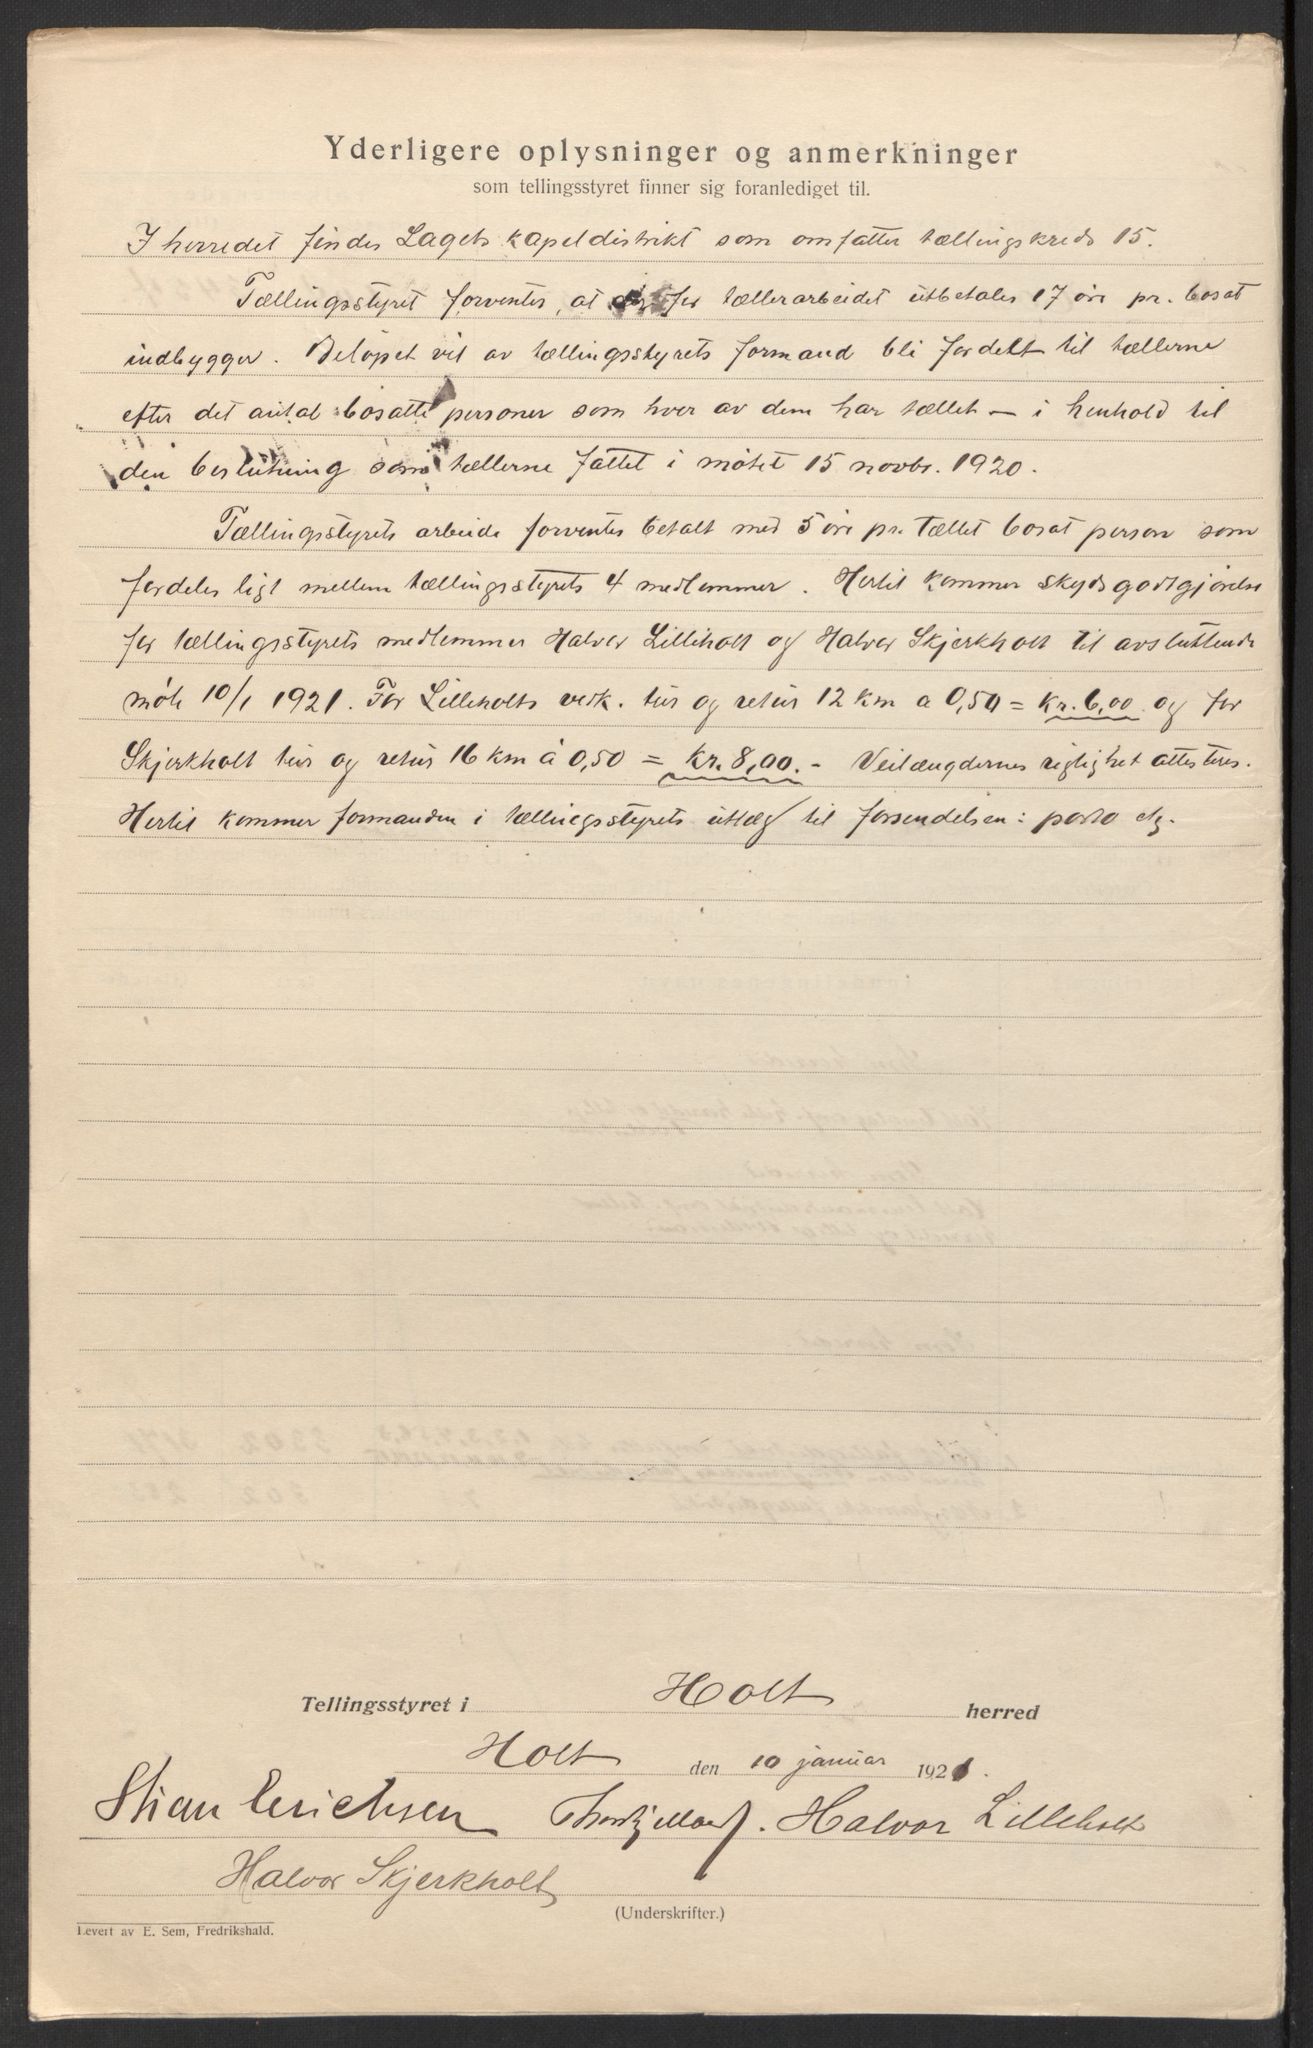 Yderligere oplysninger og anmerkninger
som tellingsstyret finner sig foranlediget til.
I herredet findes Lagets kapeldistrikt som omfatter tællingskreds 15.
Tællingsstyret forventer, at for tællerarbeidet utbetales 17 øre pr. bosat
indbygger. Beløpet vil av tællingsstyrets formand bli fordelt til tællerne
efter det antal bosatte personer som hver av dem har tællet — i henhold til
den beslutning som tællerne fattet i møtet 15 novbr. 1920.
Tællingsstyrets arbeide forventes betalt med 5 øre pr. tællet bosat person som
fordeles ligt mellem tællingsstyrets 4 medlemmer. Hertil kommer skydsgodtgjørelse
for tællingsstyrets medlemmer Halvor Lilleholt og Halvor Skjerkholt til avsluttende
møte 10/1 1921. For Lilleholts verk. tur og retur 12 km a 0,50 = Kr. 6,00 og for
Skjerkholt tur og retur 16 km á 0,50 = Kr. 8,00. - Veilængdernes rigtighet attesteres.
Hertil kommer formanden i tællingsstyrets utlæg til forsendelsen: porto etg.
Tellingsstyret i Holt herred
Holt den 10 januar 1921.
Stian Erichsen Halvor Lilleholt
Halvor Skjerkholt
(Underskrifter.)
Levert av E. Sem, Fredrikshald.